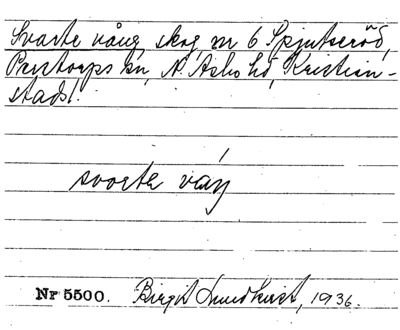 Svarte vång, skog, nr 6 Spjutseröd,
Perstorps sn, N. Åsbo hd, Kristian-
stads l.
svarta våŋ
Nr 5500. Birgit Lundkvist, 1936.